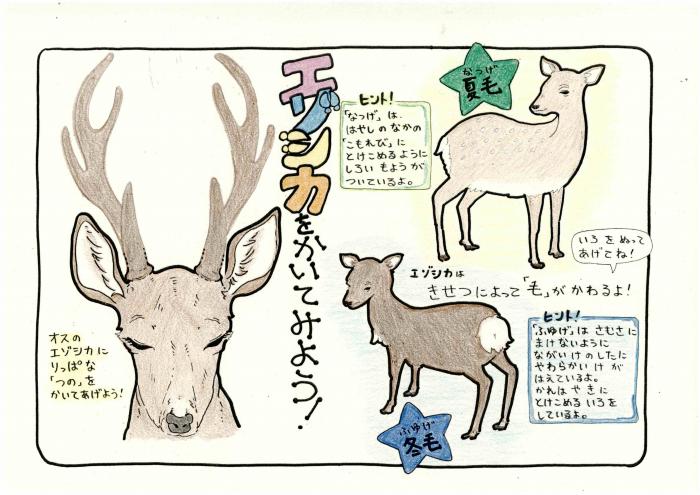 エゾシカをかいてみよう！
オスの
エゾシカに
りっぱな
「つの」を
かいてあげよう！
ヒント！
「なつげ」は、
はやしのなかの
「こもれび」に
とけこめるように
しろいもようが
ついているよ。
なつげ
夏毛
いろをぬって
あげてね！
エゾシカは
きせつによって「毛」がかわるよ！
ヒント！
「ふゆげ」はさむさに
まけないように
ながいけのしたに
やわらかいけが
はえているよ。
かれはやきに
とけこめるいろを
しているよ。
ふゆげ
冬毛